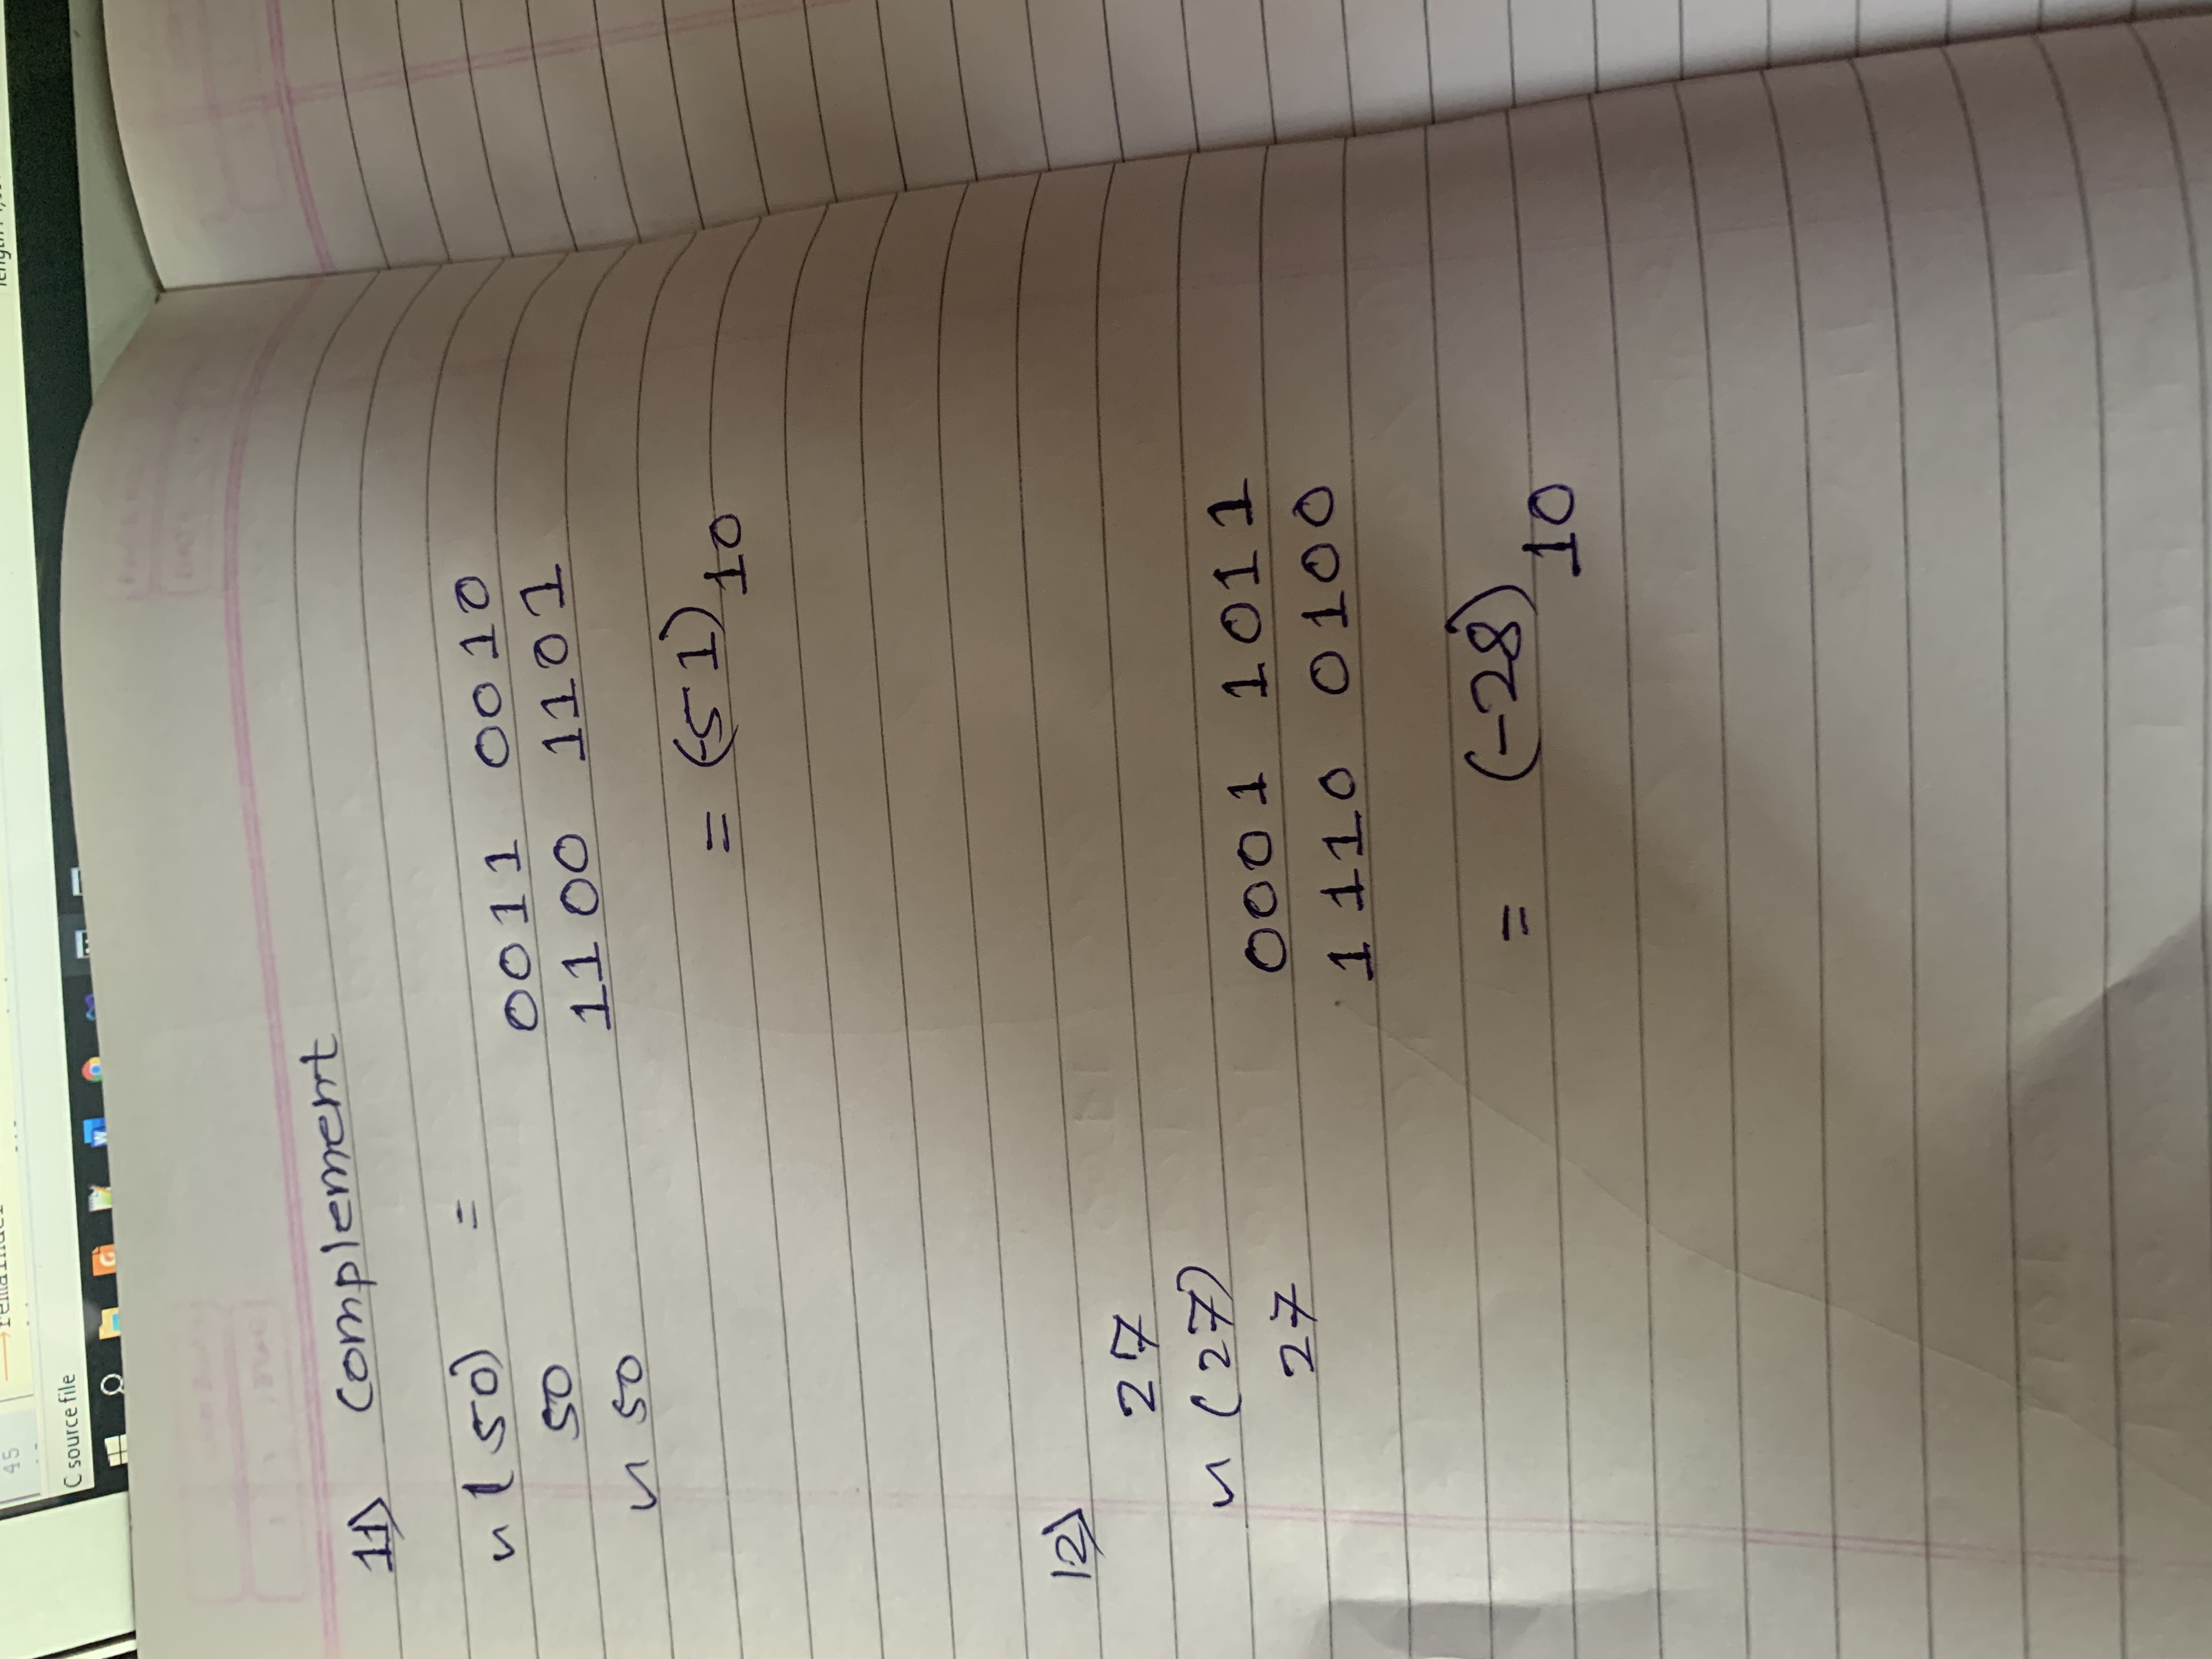 45
remainder
C source file
11) complement
~(50) =
50 0011 0010
~50 1100 1101
= (-51)10
12)
27
~(27)
27 0001 1011
1110 0100
= (-28)10